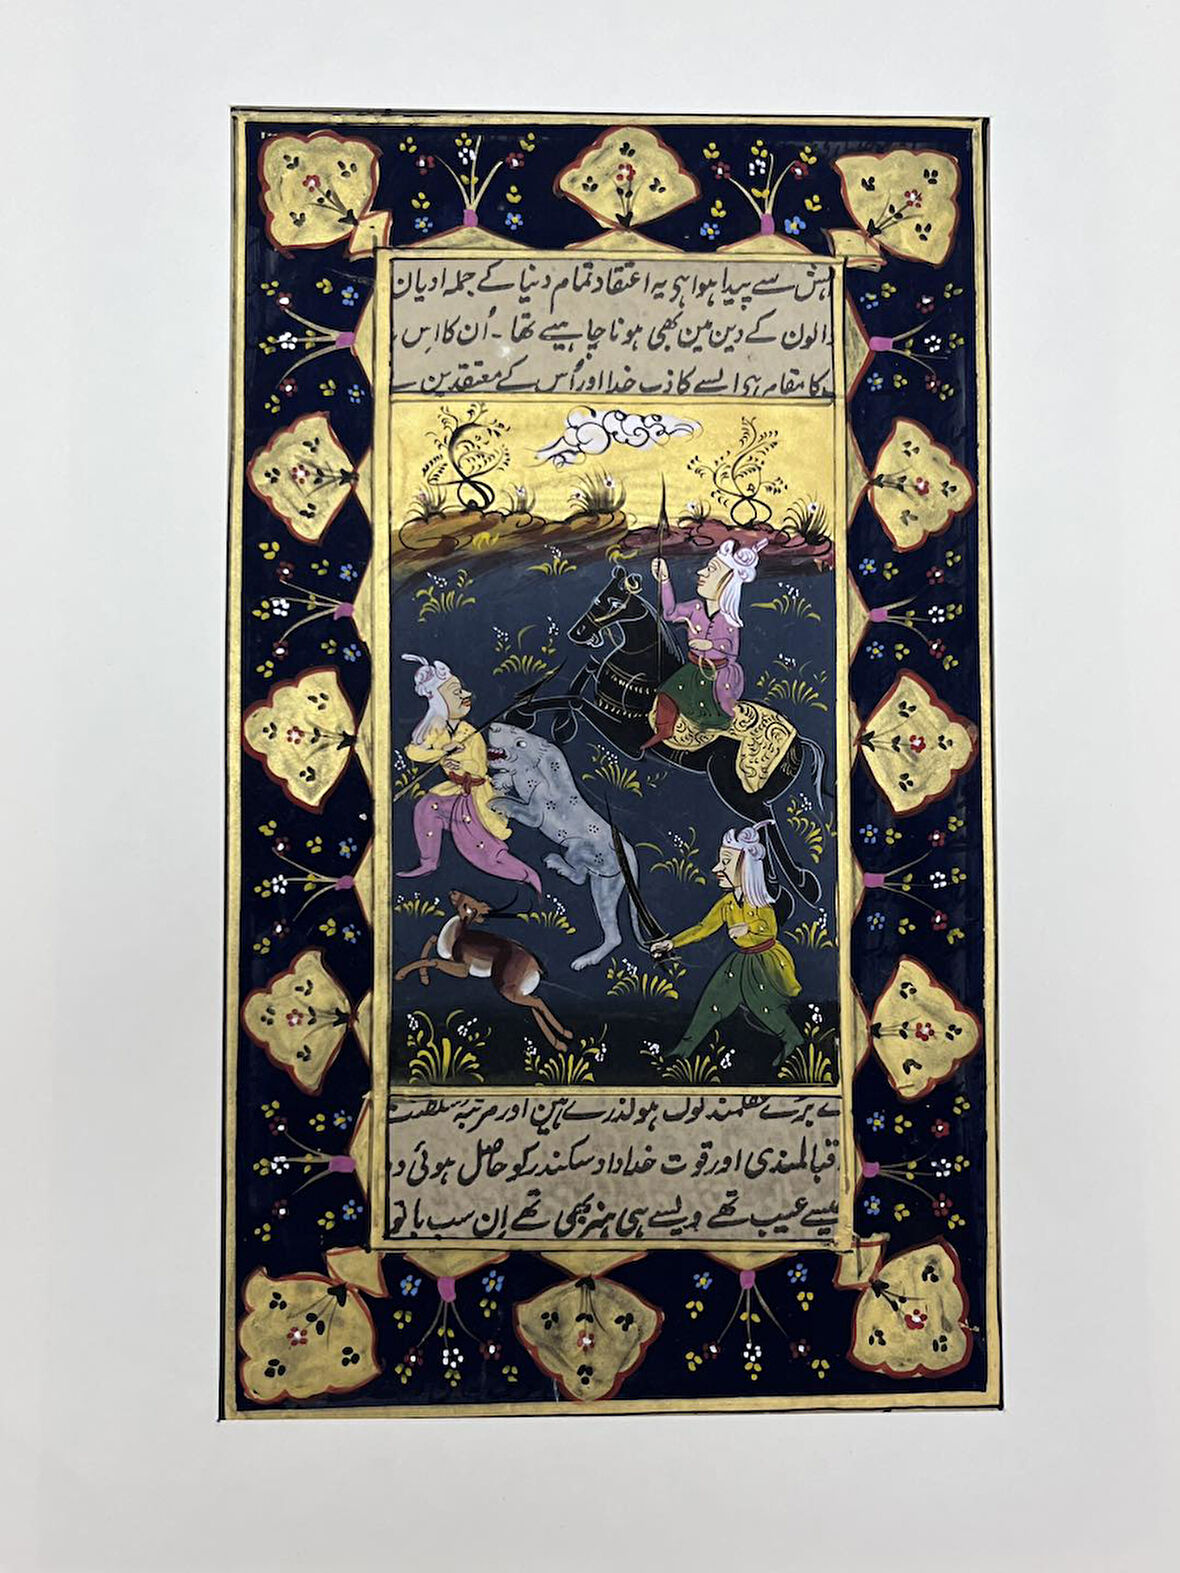 سے پیدا ہوا ہی یہ اعتقاد تمام دنیا کے جملہ ادیان
والون کے دین مین بھی ہونا چاہیے تھا ۔ اُن کا اِس
کا مقام ہی ایسے کاذب خدا اور اُس کے معتقدین
بڑے عقلمند لوگ ہو گذرے ہین اور مرتبہ سلطنت
اقبالمندی اور قوت خداداد سکندر کو حاصل ہوئی
جیسے عیب تھے ویسے ہی ہنر بھی تھے اِن سب باتو